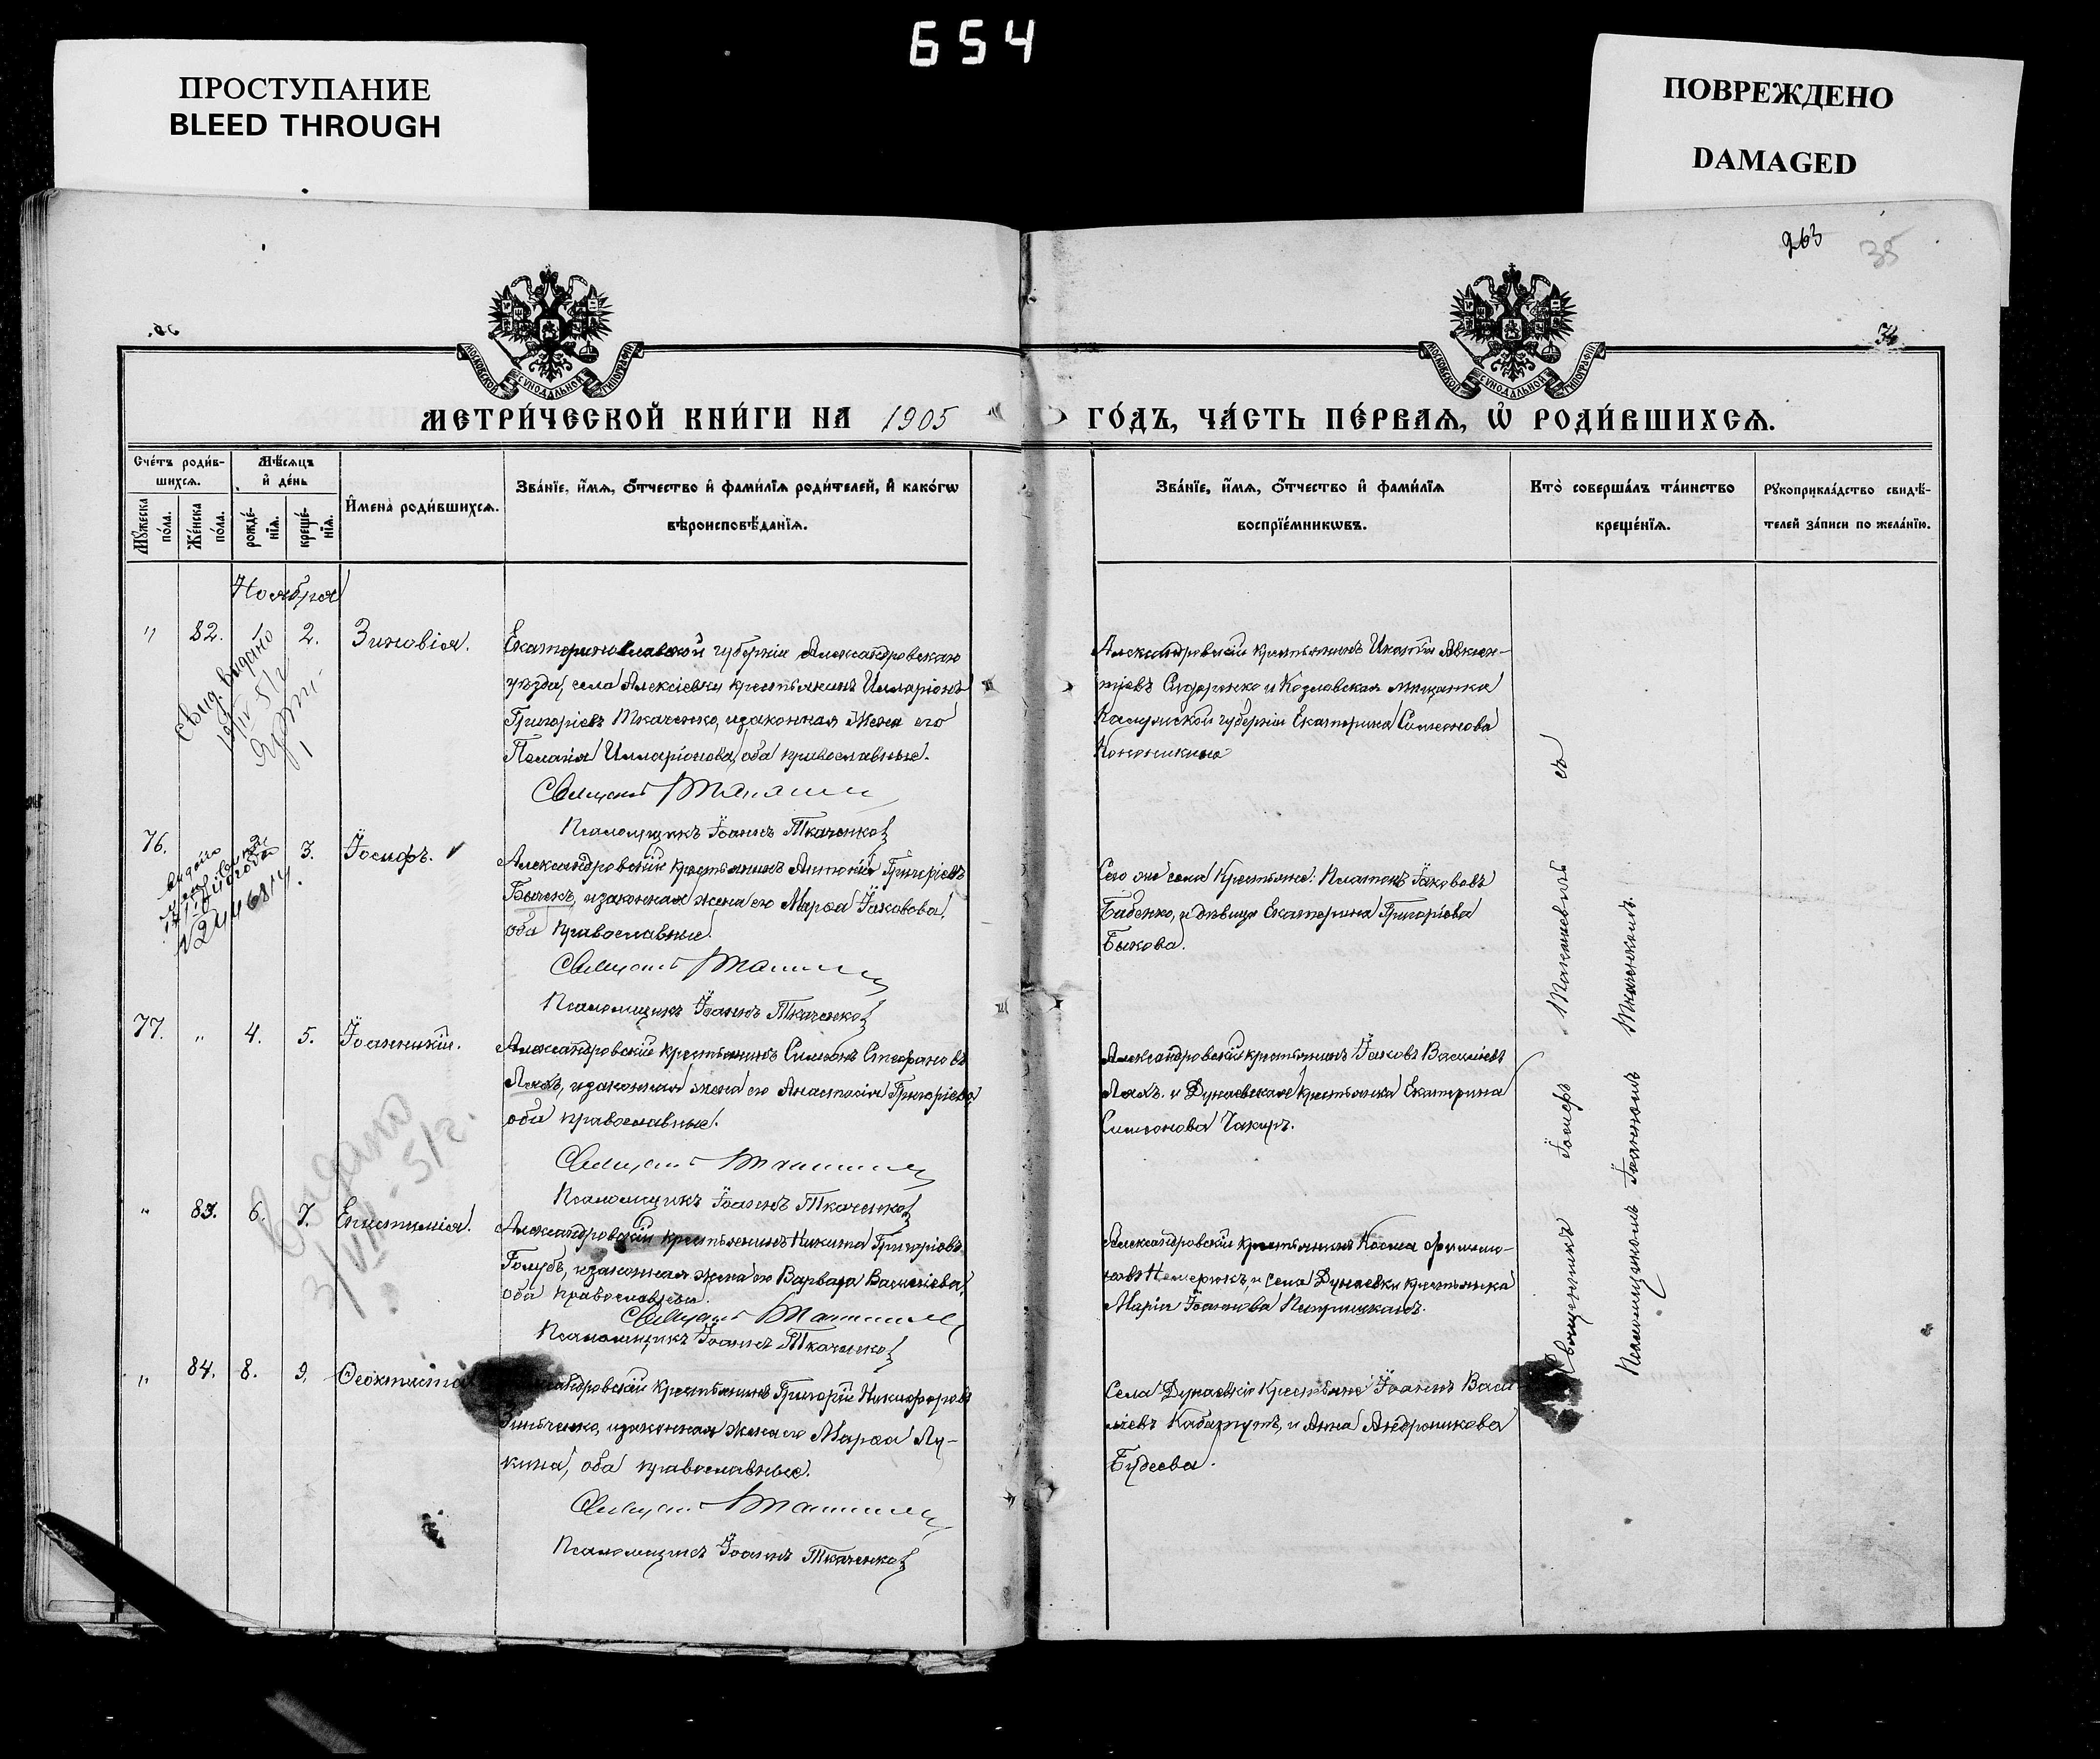 654
ПРОСТУПАНИЕ
BLEED THROUGH
ПОВРЕЖДЕНО
DAMAGED
263
35
34
МОСКОВСКОЙ СѴНОДАЛЬНОЙ ТИПОГРАФІИ
МОСКОВСКОЙ СѴНОДАЛЬНОЙ ТИПОГРАФІИ
МЕТРИ́ЧЕСКОЙ КНИ́ГИ НА 1905 ГО́ДЪ, ЧА́СТЬ ПЕ́РВАѦ, Ѡ҆ РОДИ́ВШИХСѦ.
Сче́тъ роди́в-
шихсѧ.
Мꙋ́жеска по́ла.
Же́нска по́ла.
Мѣ́сѧцъ
и҆ де́нь
рожде́-
нїѧ.
креще́-
нїѧ.
И҆мена̀ роди́вшихсѧ.
Зва́нїе, и҆́мѧ, о҆́тчество и҆ фами́лїѧ роди́телей, и҆ како́гѡ
вѣроисповѣ́данїѧ.
Зва́нїе, и҆́мѧ, о҆́тчество и҆ фами́лїѧ
воспрїе́мникѡвъ.
Кто̀ соверша́лъ та́инство
креще́нїѧ.
Рꙋкоприкла́дство свидѣ́-
телей за́писи по жела́нїю.
Ноября
" 82. 2. Зиновія.
Екатеринославской губерніи Александровскаго
уѣзда, села Алексѣевки крестьянинъ Илларіонъ
Григоріевъ Ткаченко, и законная жена его
Пелагія Илларіонова, оба православные.
Священникъ
Псаломщикъ Іоаннъ Ткаченко
Александровскій крестьянинъ Игнатій Авксен-
тіевъ Сидоренко и Козловская мѣщанка
Калужской губерніи Екатерина Симеонова
Кононыкина
Свид. выдано
76. 3. Іосифъ.
Александровскій крестьянинъ Антоній Григоріевъ
Бычекъ, и законная жена его Марѳа Іаковова,
оба православные.
Священникъ
Псаломщикъ Іоаннъ Ткаченко
Сего же села Крестьяне: Платонъ Іакововъ
Бабенко, и дѣвица Екатерина Григоріева
Быкова.
77. " 4. 5. Іоанникій.
Александровскій крестьянинъ Симеонъ Стефановъ
Ляхъ, и законная жена его Анастасія Григоріева,
оба православные.
Священникъ
Псаломщикъ Іоаннъ Ткаченко
Александровскій крестьянинъ Іаковъ Васильевъ
Ляхъ. и Дунаевская крестьянка Екатерина
Симеонова Чакиръ.
выдано
" 83. 6. 7. Епистимія.
Александровскій крестьянинъ Никита Григоріевъ
Голубъ, и законная жена его Варвара Васильева,
оба православны.
Священникъ
Псаломщикъ Іоаннъ Ткаченко
Александровскій крестьянинъ Косма Филимо-
новъ и села Дунаевки крестьянка
Марія Іоаннова
" 84. 8. 9. Ѳеоктиста
Крестьянинъ Григорій Никифоровъ
Зинченко, и законная жена его Марѳа Лу-
кина, оба православные.
Священникъ
Псаломщикъ Іоаннъ Ткаченко
Села Дунаевки Крестьяне Іоаннъ Васи
ліевъ и Анна Андроникова
Будеева.
Священникъ Іосифъ съ
Псаломщикомъ Іоанномъ Ткаченкомъ.